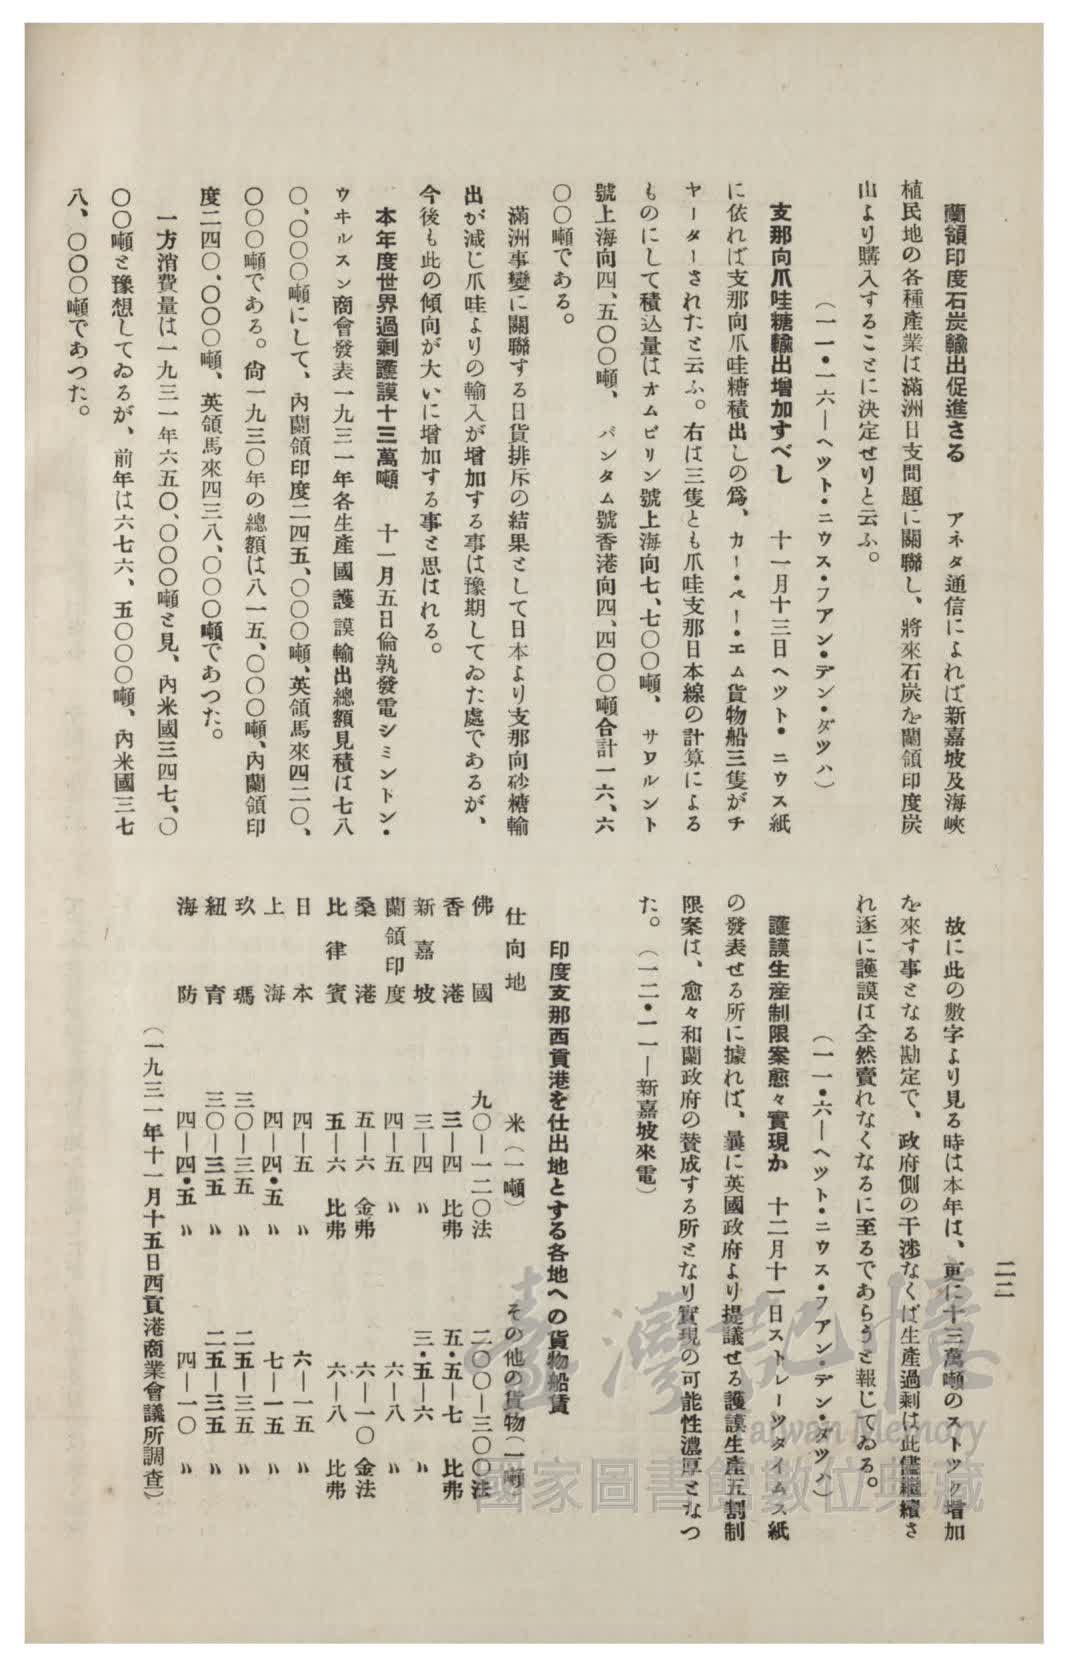 二二
蘭領印度石炭輸出促進さる　アネタ通信によれば新嘉坡及海峽
植民地の各種産業は滿洲日支問題に關聯し、將來石炭を蘭領印度炭
山より購入することに決定せりと云ふ。
（一一・一六―ヘツト・ニウス・フアン・デン・ダツハ）
支那向爪哇糖輸出增加すべし　十一月十三日ヘツト・ニウス紙
に依れば支那向爪哇糖積出しの爲、カー・ペー・エム貨物船三隻がチ
ヤーターされたと云ふ。右は三隻とも爪哇支那日本線の計算による
ものにして積込量はガムビリン號上海向七、七〇〇噸、サワルント
號上海向四、五〇〇噸、バンタム號香港向四、四〇〇噸合計一六、六
〇〇噸である。
滿洲事變に關聯する日貨排斥の結果として日本より支那向砂糖輸
出が減じ爪哇よりの輸入が增加する事は豫期してゐた處であるが、
今後も此の傾向が大いに增加する事と思はれる。
本年度世界過剩護謨十三萬噸　十一月五日倫敦發電シミントン・
ウヰルスン商會發表一九三一年各生產國護謨輸出總額見積は七八
〇、〇〇〇噸にして、內蘭領印度二四五、〇〇〇噸、英領馬來四二〇、
〇〇〇噸である。尙一九三〇年の總額は八一五、〇〇〇噸、內蘭領印
度二四〇、〇〇〇噸、英領馬來四三八、〇〇〇噸であつた。
一方消費量は一九三一年六五〇、〇〇〇噸と見、內米國三四七、〇
〇〇噸と豫想してゐるが、前年は六七六、五〇〇〇噸、內米國三七
八、〇〇〇噸であつた。
故に此の數字より見る時は本年は、更に十三萬噸のストツク增加
を來す事となる勘定で、政府側の干涉なくば生產過剩は此儘繼續さ
れ逐に護謨は全然賣れなくなるに至るであらうと報じてゐる。
（一一・六―ヘツト・ニウス・フアン・デン・ダツハ）
護謨生產制限案愈々實現か　十二月十一日ストレーツタイムス紙
の發表せる所に據れば、曩に英國政府より提議せる護謨生產五割制
限案は、愈々和蘭政府の賛成する所となり實現の可能性濃厚となつ
た。（一二・一一―新嘉坡來電）
印度支那西貢港を仕出地とする各地への貨物船賃
仕向地　米（一噸）　その他の貨物（一噸
佛國　九〇―一二〇法　二〇〇―三〇〇法
香港　三―四　比弗　五・五―七　比弗
新嘉坡　三―四　〃　三・五―六　〃
蘭領印度　四―五　〃　六―八　〃
桑港　五―六　金弗　六―一〇　金法
比律賓　五―六　比弗　六―八　比弗
日本　四―五　〃　六―一五　〃
上海　四―四・五　〃　七―一五　〃
玖瑪　三〇―三五　〃　二五―三五　〃
紐育　三〇―三五　〃　二五―三五　〃
海防　四―四・五　〃　四―一〇　〃
（一九三一年十一月十五日西貢港商業會議所調査）
臺灣記憶
Taiwan Memory
國家圖書館數位典藏